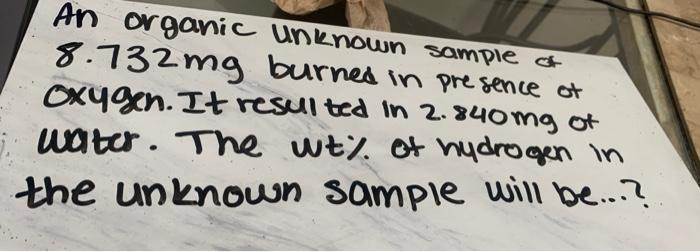 An organic unknown sample of
8.732mg burned in presence of
oxygen. It resulted in 2.840mg of
water. The wt% of hydrogen in
the unknown sample will be...?